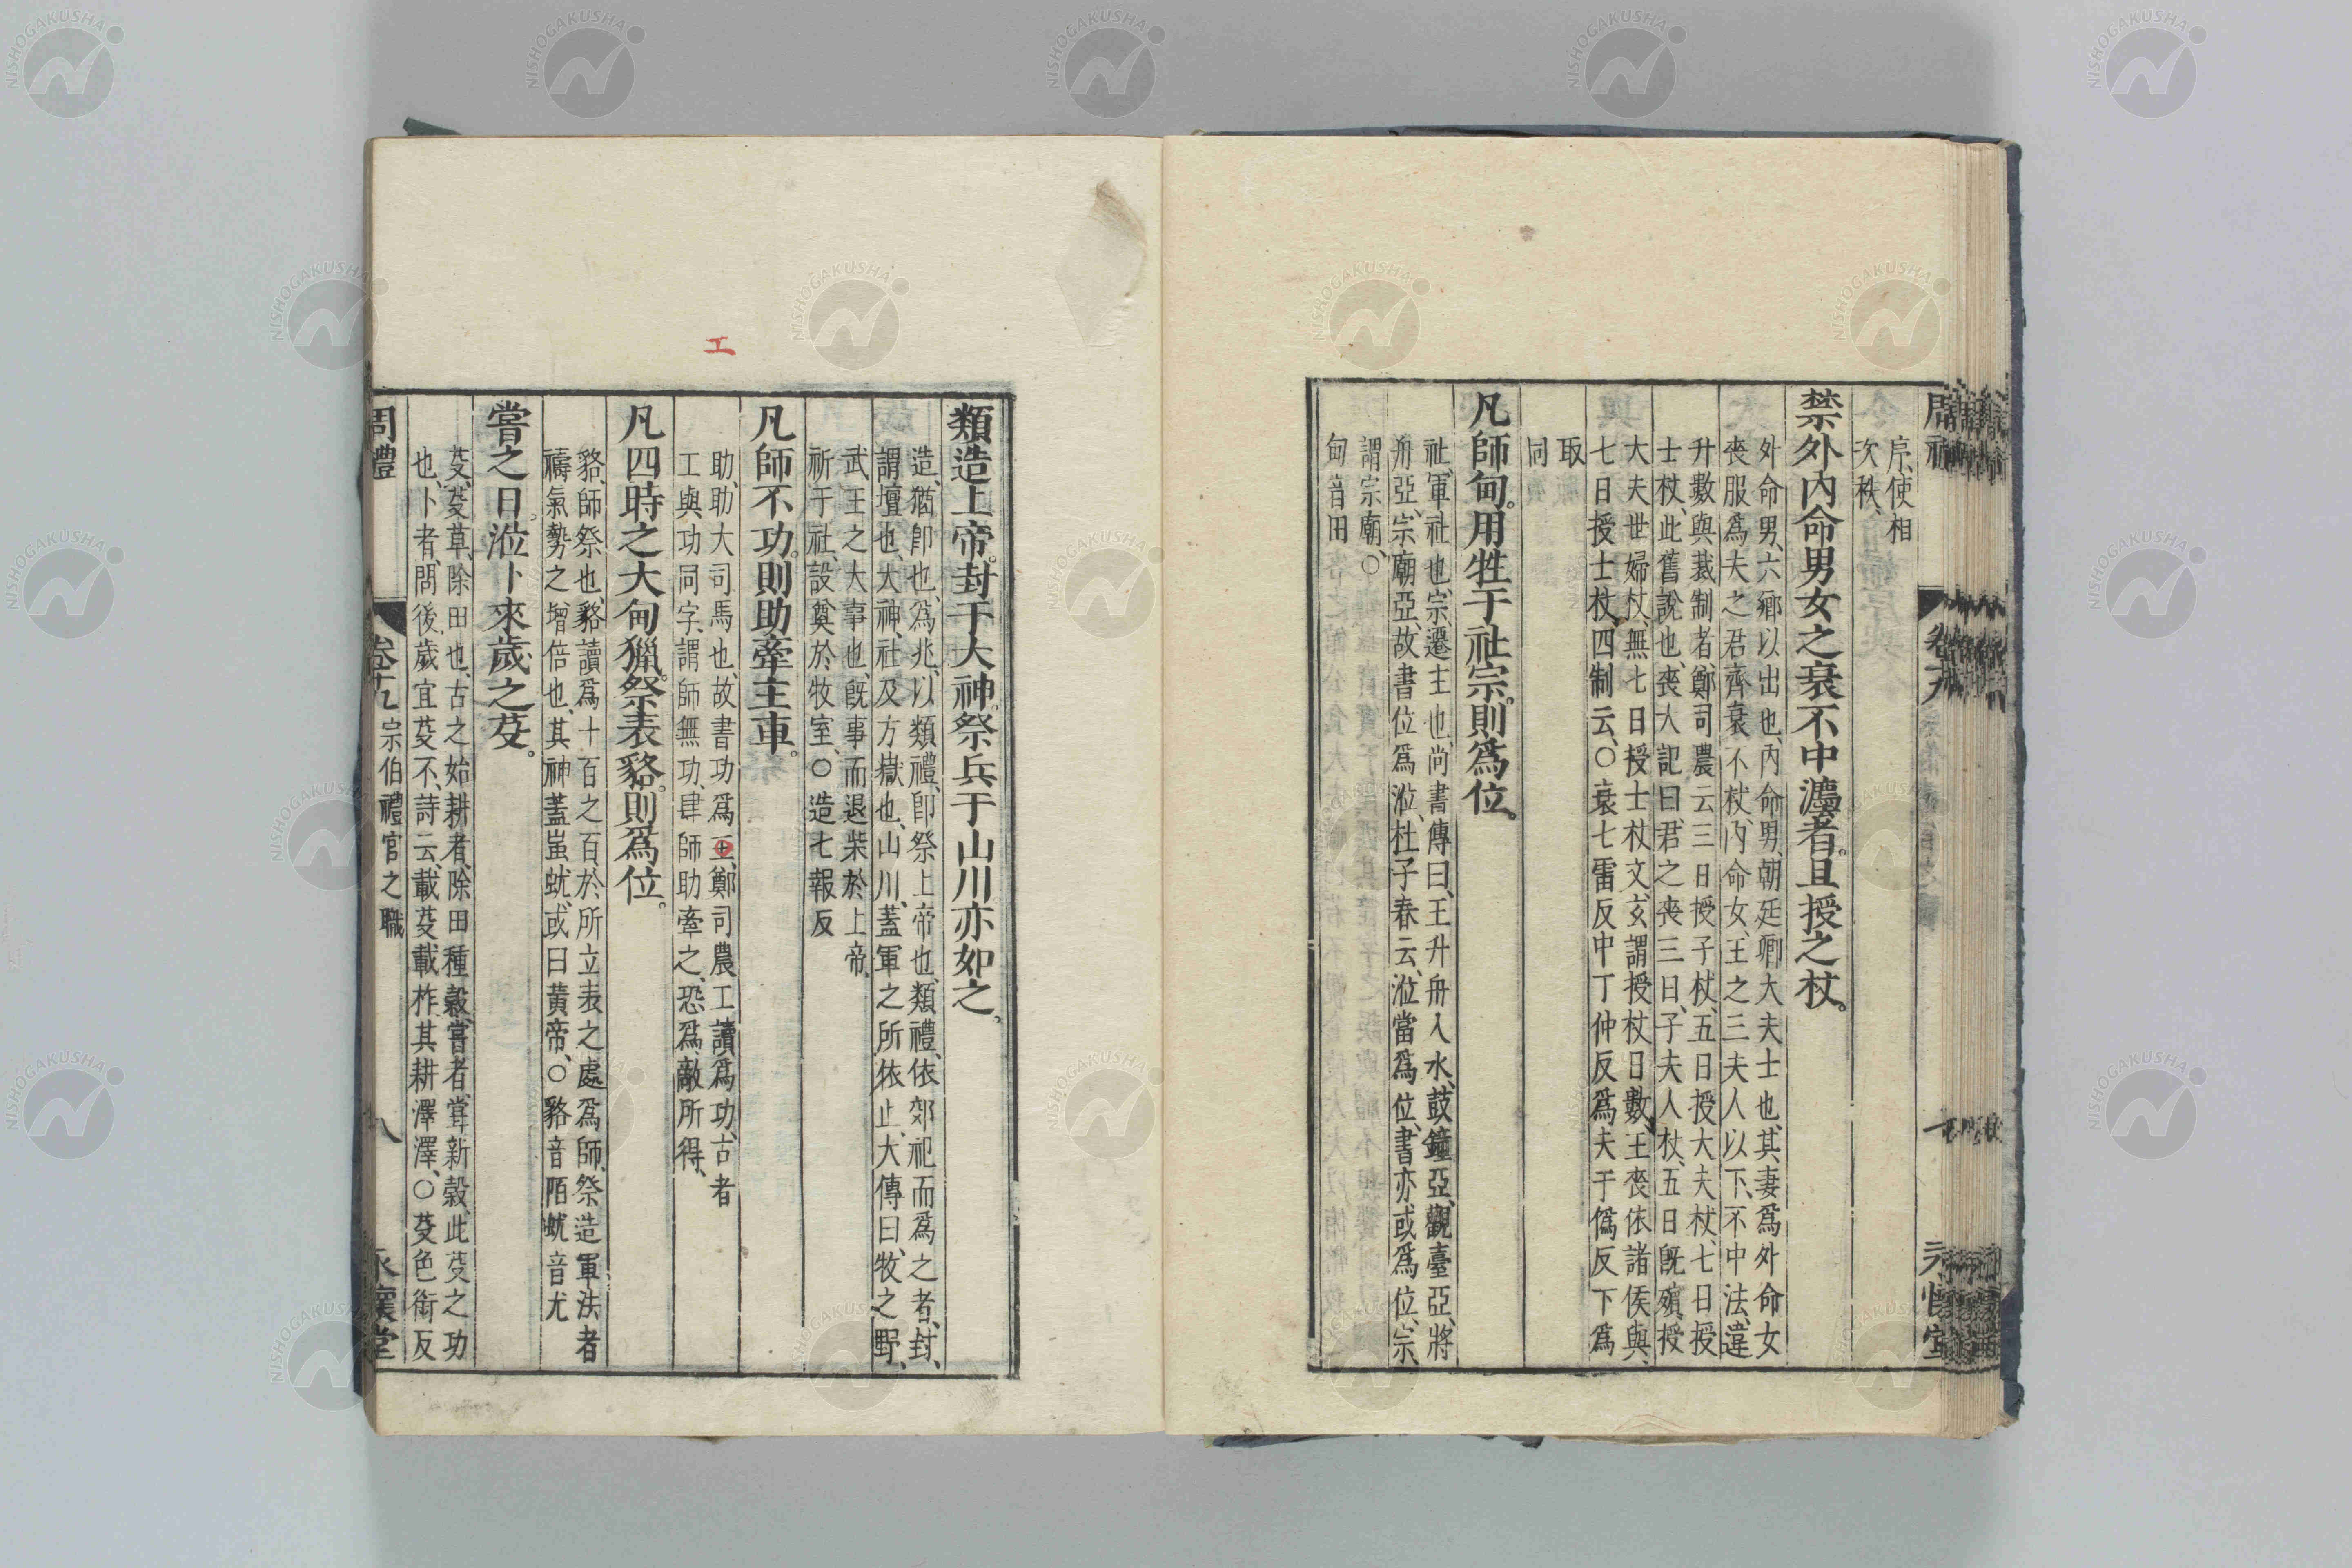 序、使相
次秩、
禁外內命男女之衰不中灋者。且授之杖。
外命男、六鄉以出也、內命男、朝廷卿大夫士也、其妻爲外命女
喪服爲夫之君齊衰不杖、內命女、王之三夫人以下、不中法、違
升數與裁制者、鄭司農云三日授子杖、五日授大夫杖、七日授
士杖、此舊說也、喪大記曰、君之喪三日、子夫人杖、五日旣殯、授
大夫世婦杖、無七日授士杖文、玄謂授杖日數、王喪依諸侯與、
七日授士杖、四制云、〇衰七雷反中丁仲反爲夫于僞反下爲
取
同
凡師甸。用牲于社宗。則爲位。
社、軍社也、宗、遷主也、尚書傳曰、王升舟入水、鼓鐘亞、觀臺亞、將
舟亞、宗廟亞、故書位爲涖、杜子春云、涖當爲位、書亦或爲位、宗、
謂宗廟、〇
甸音田
類造上帝。封于大神。祭兵于山川亦如之。
造、猶卽也、爲兆、以類禮、卽祭上帝也、類禮、依郊祀而爲之者、封、
謂壇也、大神、社及方嶽也、山川、蓋軍之所依止、大傳曰、牧之野、
武王之大事也、旣事而退柴於上帝、
祈于社、設奠於牧室、〇造七報反
凡師不功。則助牽主車。
助、助大司馬也、故書功爲工、鄭司農工讀爲功、古者
工與功同字、謂師無功、肆師助牽之、恐爲敵所得、
凡四時之大甸獵。祭表貉。則爲位。
貉、師祭也、貉讀爲十百之百、於所立表之處、爲師祭造軍法者
禱氣勢之增倍也、其神蓋蚩蚘、或曰黃帝、〇貉音陌蚘音尤
嘗之日。涖卜來歲之芟。
芟、芟草、除田也、古之始耕者、除田種穀、嘗者、嘗新穀、此芟之功
也、卜者、問後歲宜芟不、詩云、載芟載柞、其耕澤澤、〇芟色銜反
周禮
卷十九 宗伯禮官之職
八
永懷堂
工